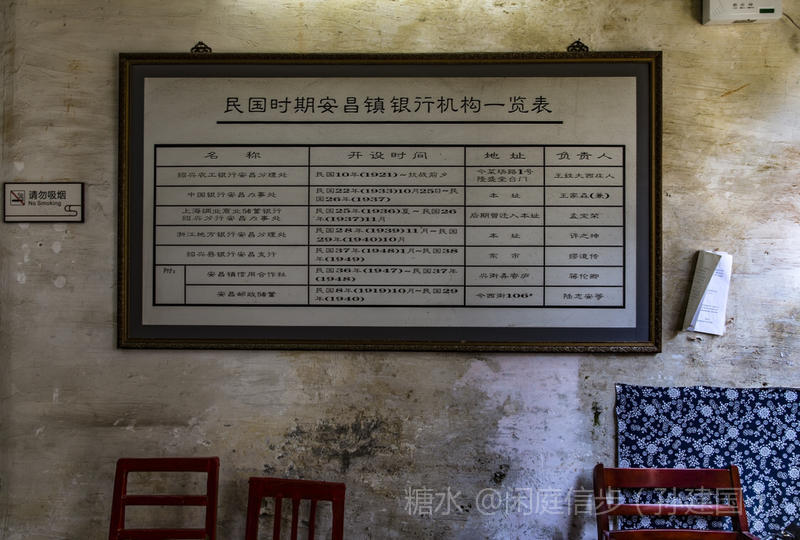 民国时期安昌镇银行机构一览表
名 称 开设时间 地 址 负责人
绍兴农工银行安昌分理处 民国10年(1921)~抗战前夕 今菜场路1号 王铁大西庄人
隆盛堂台门
中国银行安昌办事处 民国22年(1933)10月25日~民 本 址 王家森(兼)
国26年(1937)
上海绸业商业储蓄银行 民国25年(1936)夏~民国26 后期曾迁入本址 孟宝荣
绍兴分行安昌办事处 年(1937)11月
浙江地方银行安昌分理处 民国28年(1939)11月~民国 本 址 许之坤
29年(1940)10月
绍兴县银行安昌支行 民国37年(1948)1月~民国38 东 市 缪道传
年(1949)
附: 安昌镇信用合作社 民国36年(1947)~民国37年 蒋伦卿
(1948)
安昌邮政储蓄 民国8年(1919)10月~民国29 今西街106# 陆志安等
年(1940)
请勿吸烟
No Smoking
糖水 @闲庭信步(孙建国